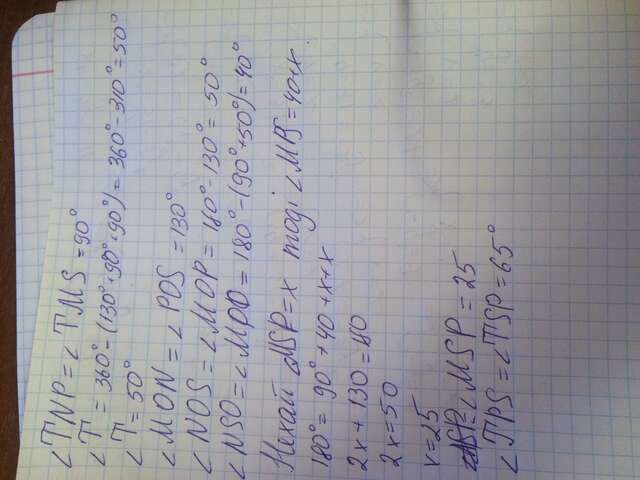 ∠TNP = ∠TMS = 90°
∠T = 360° - (130° + 90° + 90°) = 360° - 310° = 50°
∠T = 50°
∠MON = ∠POS = 130°
∠NOS = ∠MOP = 180° - 130° = 50°
∠NSO = ∠MPO = 180° - (90° + 50°) = 40°
Нехай MSP = x тоді ∠MPS = 40+x.
180° = 90° + 40 + x + x
2x + 130 = 180
2x = 50
x = 25
∠MSP = 25
∠TPS = ∠TSP = 65°